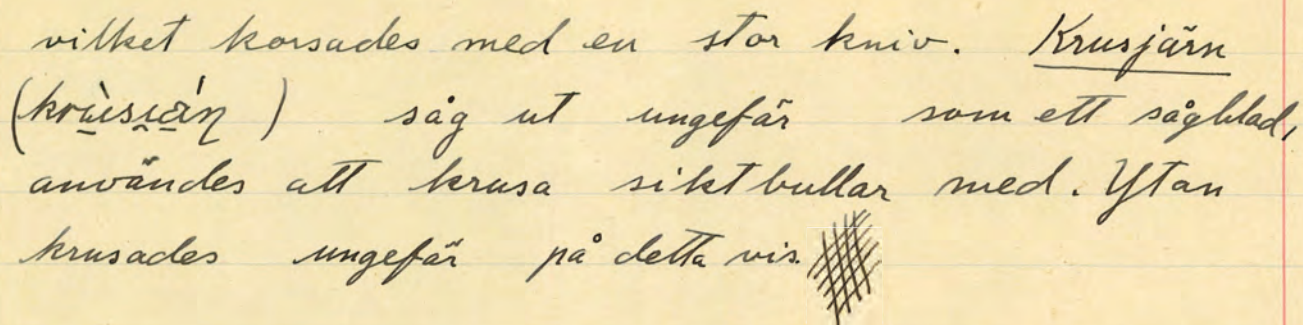 vilket korsades med en stor kniv. Krusjärn
(krùsıä́ɳ) såg ut ungefär som ett sågblad,
användes att krusa siktbullar med. Ytan
krusades ungefär på detta vis.